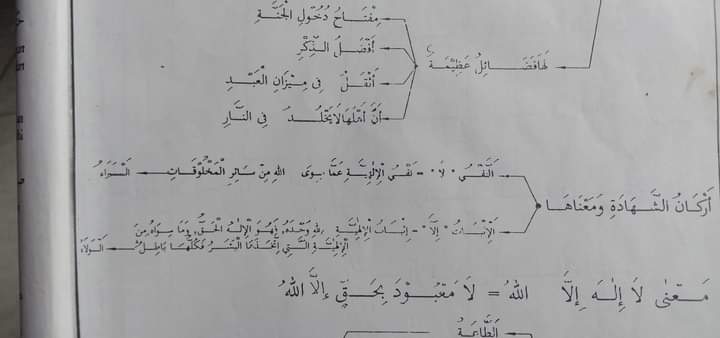 مِفْتَاحُ دُخُوْلِ الْجَنَّةِ
أَفْضَلُ الذِّكْرِ
لَهَا فَضَائِلُ عَظِيْمَةٌ
أَثْقَلُ فِى مِيْزَانِ الْعَبْدِ
أَنَّ أَهْلَهَا لَا يَخْلُدُ فِى النَّارِ
اَلنَّفْيُ " لَا " = نَفْيُ الْإِلٰهِيَّةِ عَمَّا سِوَى اللهِ مِنْ سَائِرِ الْمَخْلُوْقَاتِ اَلْبَرَاءُ
أَرْكَانُ الشَّهَادَةِ وَمَعْنَاهَا
اَلْإِثْبَاتُ " إِلَّا " = إِثْبَاتُ الْإِلٰهِيَّةِ لِلّٰهِ وَحْدَهُ، فَهُوَ الْإِلٰهُ الْحَقُّ، وَمَا سِوَاهُ مِنَ
الْإِلٰهِيَّةِ الَّتِي اِتَّخَذَهَا الْبَشَرُ فَكُلُّهَا بَاطِلٌ اَلْوَلَاءُ
مَعْنٰى لَا إِلٰهَ إِلَّا اللهُ = لَا مَعْبُوْدَ بِحَقٍّ إِلَّا اللهُ